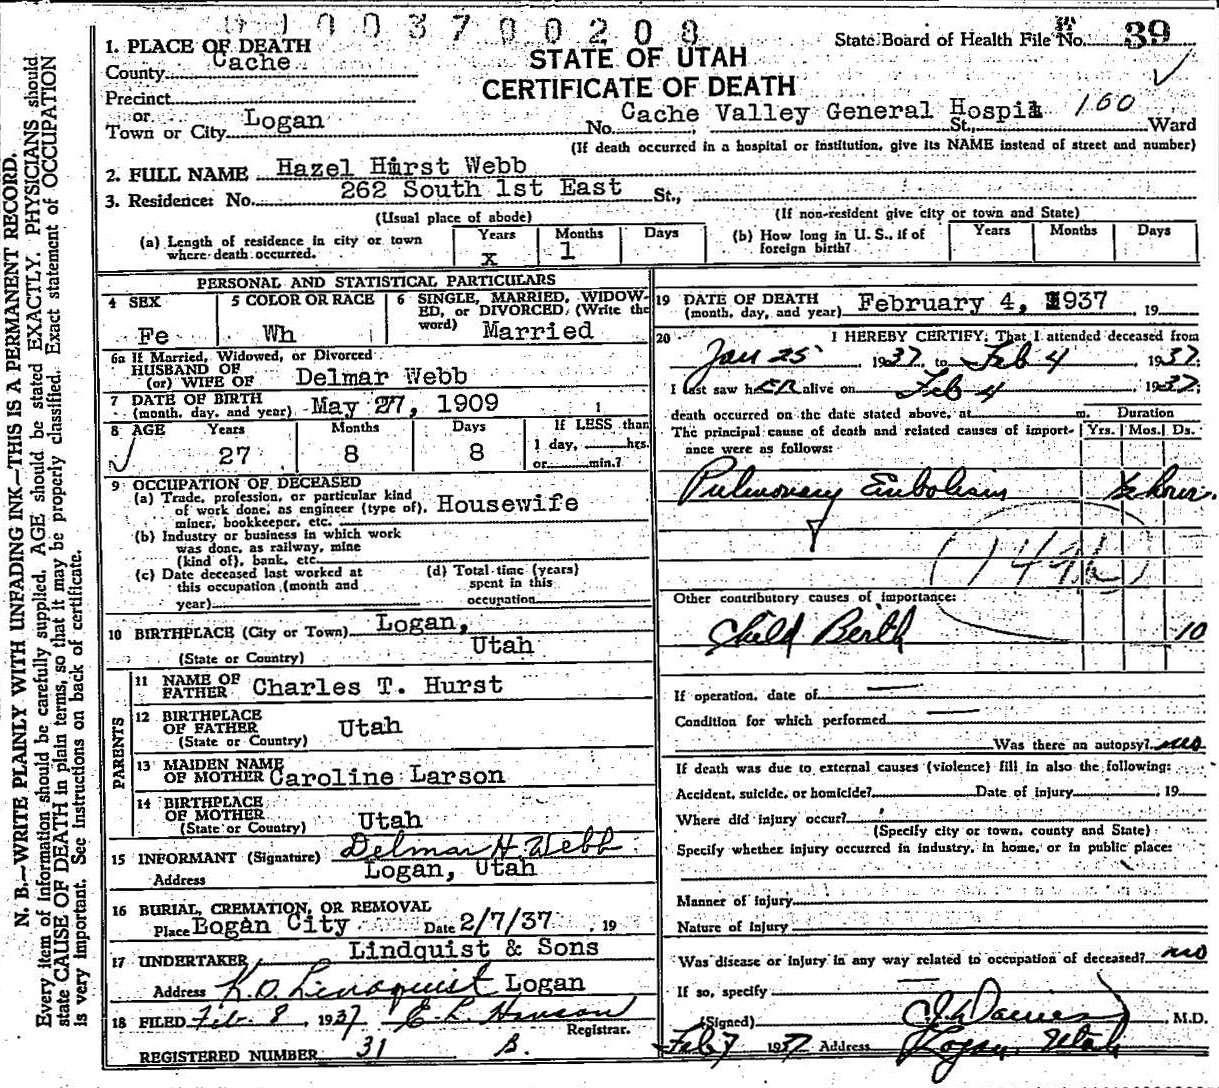 01003700208
1. PLACE OF DEATH
County Cache
STATE OF UTAH
CERTIFICATE OF DEATH
State Board of Health File No. 39
Precinct
or
Town or City Logan
No. Cache Valley General Hospi 160
St., Ward
(If death occurred in a hospital or institution, give its NAME instead of street and number)
2. FULL NAME Hazel Hurst Webb
3. Residence: No. 262 South 1st East St.,
(Usual place of abode)
(If non-resident give city or town and State)
(a) Length of residence in city or town where death occurred. Years x Months 1 Days
(b) How long in U. S., if of foreign birth? Years Months Days
PERSONAL AND STATISTICAL PARTICULARS
4 SEX Fe
5 COLOR OR RACE Wh
6 SINGLE, MARRIED, WIDOWED, or DIVORCED. (Write the word) Married
6a If Married, Widowed, or Divorced
HUSBAND OF
(or) WIFE OF Delmar Webb
7 DATE OF BIRTH
(month, day, and year) May 27, 1909
8 AGE Years 27 Months 8 Days 8
If LESS than
1 day, hrs.
or min.?
9 OCCUPATION OF DECEASED
(a) Trade, profession, or particular kind
of work done, as engineer (type of), Housewife
miner, bookkeeper, etc.
(b) Industry or business in which work
was done, as railway, mine
(kind of), bank, etc.
(c) Date deceased last worked at
this occupation (month and
year)
(d) Total time (years)
spent in this
occupation
10 BIRTHPLACE (City or Town) Logan,
(State or Country) Utah
PARENTS
11 NAME OF
FATHER Charles T. Hurst
12 BIRTHPLACE
OF FATHER Utah
(State or Country)
13 MAIDEN NAME
OF MOTHER Caroline Larson
14 BIRTHPLACE
OF MOTHER
(State or Country) Utah
15 INFORMANT (Signature) Delmar H Webb
Address Logan, Utah
16 BURIAL, CREMATION, OR REMOVAL
Place Logan City Date 2/7/37 , 19
17 UNDERTAKER Lindquist & Sons
Address K.O. Lindquist Logan
18 FILED Feb. 8, 1937 E. L. Hanson
Registrar.
REGISTERED NUMBER 31 B.
19 DATE OF DEATH
(month, day, and year) February 4, 1937 19
20 I HEREBY CERTIFY, That I attended deceased from
Jan 25, 1937 to Feb 4 1937.
I last saw hER alive on Feb 4 1937.
death occurred on the date stated above, at m. Duration
The principal cause of death and related causes of importance were as follows: Yrs. Mos. Ds.
Pulmonary Embolism ½ hour.
Other contributory causes of importance:
Child Berth 10
If operation, date of —
Condition for which performed —
Was there an autopsy? no
If death was due to external causes (violence) fill in also the following:
Accident, suicide, or homicide? Date of injury , 19
Where did injury occur?
(Specify city or town, county and State)
Specify whether injury occurred in industry, in home, or in public place:
Manner of injury
Nature of injury
Was disease or injury in any way related to occupation of deceased? no
If so, specify
(Signed) Daines, M.D.
Feb 7 1937 Address Logan, Utah
N. B.—WRITE PLAINLY WITH UNFADING INK—THIS IS A PERMANENT RECORD.
Every item of information should be carefully supplied. AGE should be stated EXACTLY. PHYSICIANS should
state CAUSE OF DEATH in plain terms, so that it may be properly classified. Exact statement of OCCUPATION
is very important. See instructions on back of certificate.